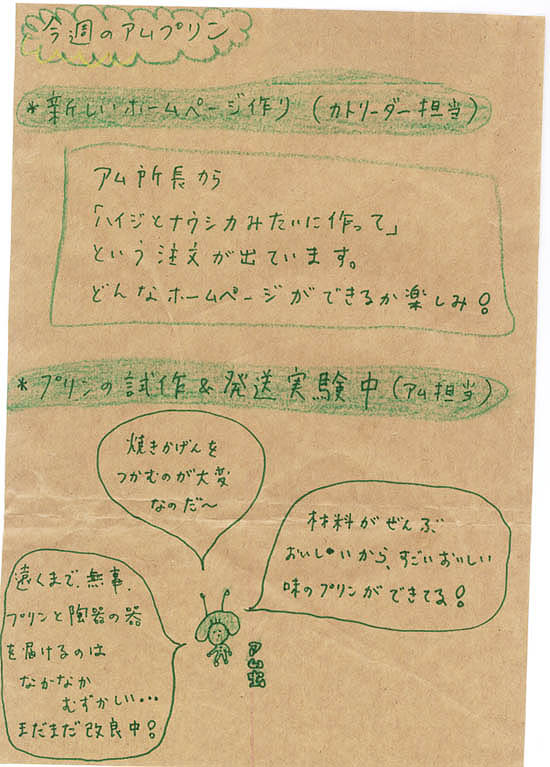 今週のアムプリン
*新しいホームページ作り（カトリーダー担当）
アム所長から
「ハイジとナウシカみたいに作って」
という注文が出ています。
どんなホームページができるか楽しみ!
*プリンの試作&発送実験中(アム担当)
焼きかげんを
つかむのが大変
なのだ〜
材料がぜんぶ
おいしいから、すごいおいしい
味のプリンができてる!
遠くまで、無事、
プリンと陶器の器
を届けるのは
なかなか
むずかしい…
まだまだ改良中!
アム虫